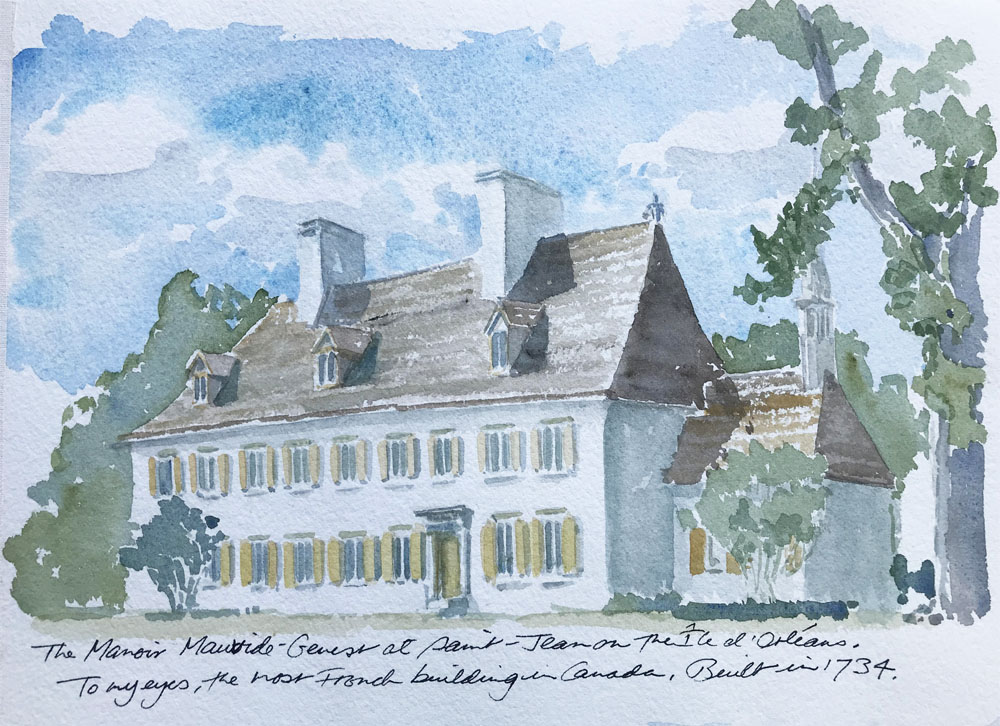 The Manoir Mauvide-Genest at Saint-Jean on the Île d'Orléans.
To my eyes, the most French building in Canada. Built in 1734.